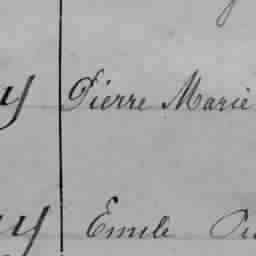 y Pierre Marie
y Emile